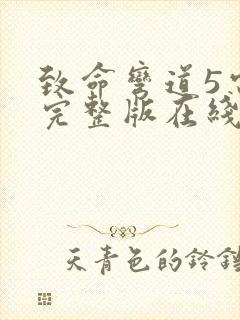 致命弯道5
完整版在线
天青色的铃铛